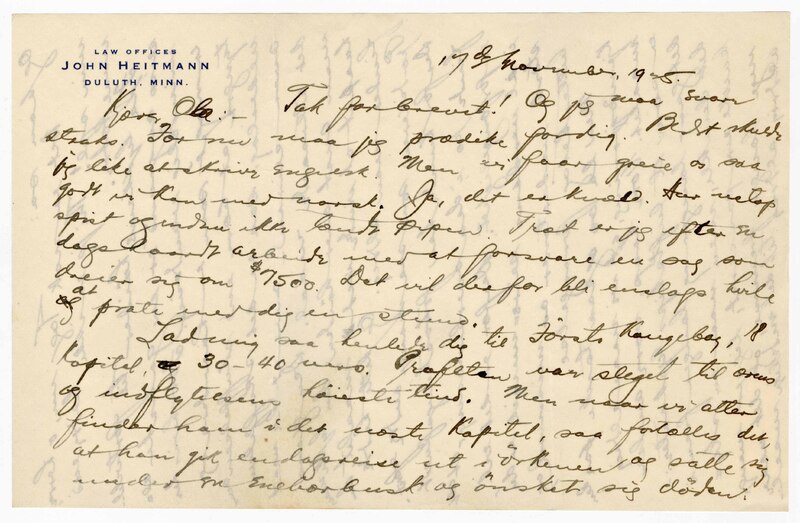 LAW OFFICES
JOHN HEITMANN
DULUTH, MINN.
17de November, 1925.
Kjære Ola: — Tak for brevet! Og jeg maa svare
straks. For nu maa jeg prædike for dig. Bedst skulde
jeg like at skrive Engelsk. Men vi faar greie os saa
godt vi kan med norsk. Ja, det er kveld. Har netop
spist og endnu ikke tændt Pipen. Træt er jeg efter en
dags haardt arbeide med at forsvare en sag som
dreier sig om $7500. Det vil derfor bli en slags hvile
at prate med dig en stund.
Lad mig saa henlede dig til Første Kongebog, 18
Kapitel, 30-40 vers. Profeten var steget til ærens
og indflytelsens høieste tind. Men naar vi atter
finder ham i det næste Kapitel, saa fortælles det,
at han gik en dagsreise ut i ørkenen og satte sig
under en Enebærbusk og ønsket sig døden.